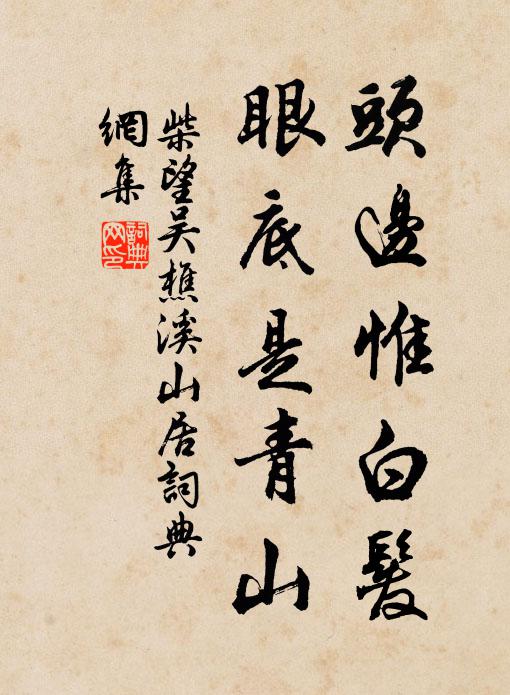 頭邊惟白髮
眼底是青山
柴望吴樵溪山居詞典
網集
詞典
网印